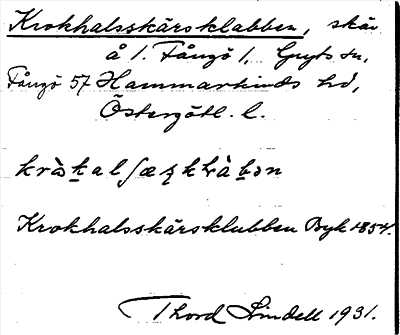 Krokhalsskärsklabben, skär
å l. Fångö l, Gryts sn,
Fångö 57 Hammarkinds hd,
Östergötl. l.
Krokhalsskärsklubben Byk 1854.
Thord Lindell 1931.